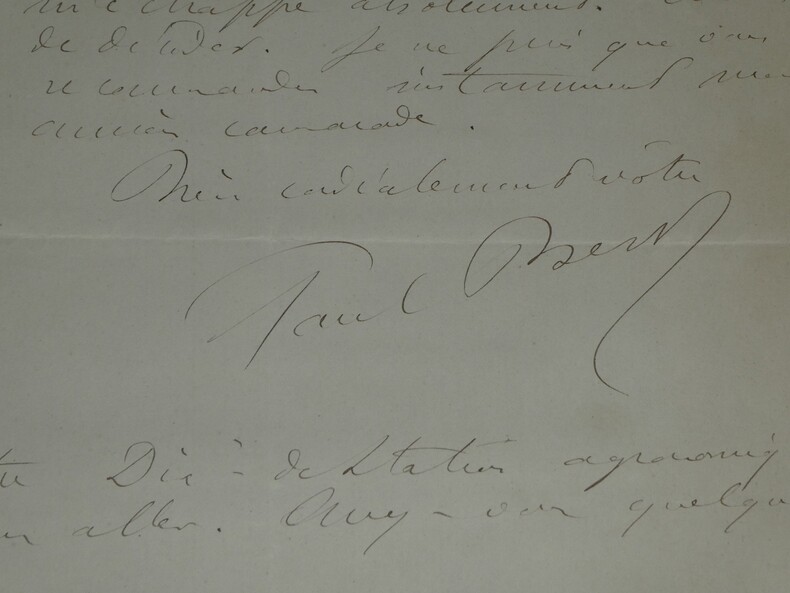 m'échappe absolument.
de décider. Je ne puis que vous
recommander instamment mon
ancien camarade.
Bien cordialement vôtre
Paul Bert
Dir de Station agronomiq
aller. Avez-vous quelqu